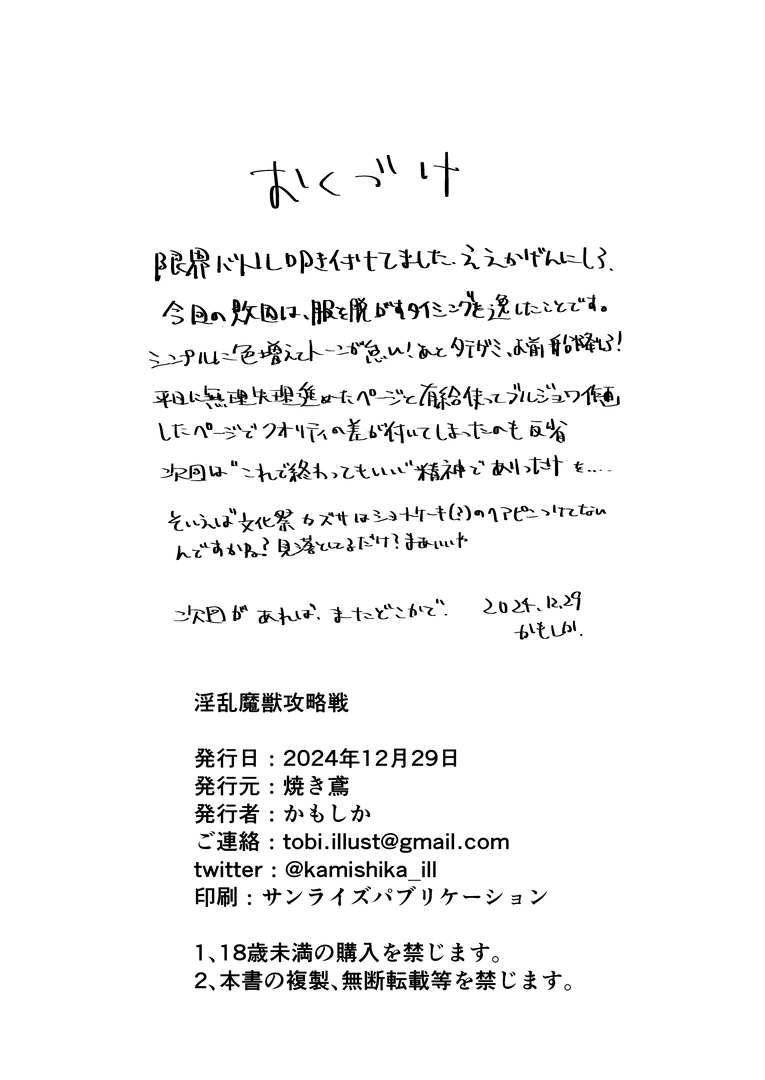 おくづけ
限界バトル叩き付けてました。ええかげんにしろ。
今回の敗因は、服を脱がすタイミングを逸したことです。
シンプルに色増えてトーンが怠い！あとタテグミ、お前船降りろ！
平日に無理矢理進めたページと有給使ってブルジョワ作画
したページでクオリティの差が付いてしまったのも反省
次回は"これで終わってもいい"精神でありったけを....
そいえば文化祭カズサはショートケーキ(?)のヘアピンつけてない
んですかね？見落としてるだけ？まあいいや
次回があれば、またどこかで。 2024.12.29
かもしか.
淫乱魔獣攻略戦
発行日：2024年12月29日
発行元：焼き鳶
発行者：かもしか
ご連絡：tobi.illust@gmail.com
twitter：@kamishika_ill
印刷：サンライズパブリケーション
1、18歳未満の購入を禁じます。
2、本書の複製、無断転載等を禁じます。